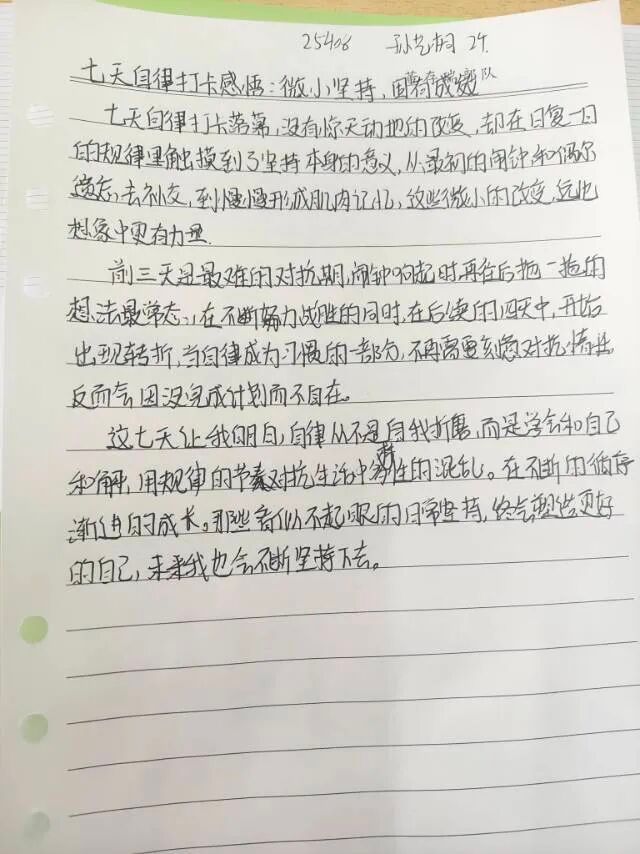 25406 孙艺桐 24.
七天自律打卡感悟:微小坚持,
七天自律打卡落幕,没有惊天动地的改变,却在日复一日
的规律里触摸到了坚持本身的意义,从最初的闹钟和偶尔
遗忘,去社交,到慢慢形成肌肉记忆,这些微小的改变,远比
想象中更有力量.
前三天是最难的对抗期,闹钟响起时,再往后拖一拖的
想法最常态,在不断努力战胜的同时,在后续的四天中,开始
出现转折,当自律成为习惯的一部分,不再需要刻意对抗惰性,
反而会因没完成计划而不自在。
这七天让我明白,自律从不是自我折磨,而是学会和自己
和解,用规律的节奏对抗生活中惰性的混乱。在不断的循序
渐进的成长。那些看似不起眼的日常坚持,终会塑造更好
的自己,未来我也会不断坚持下去。